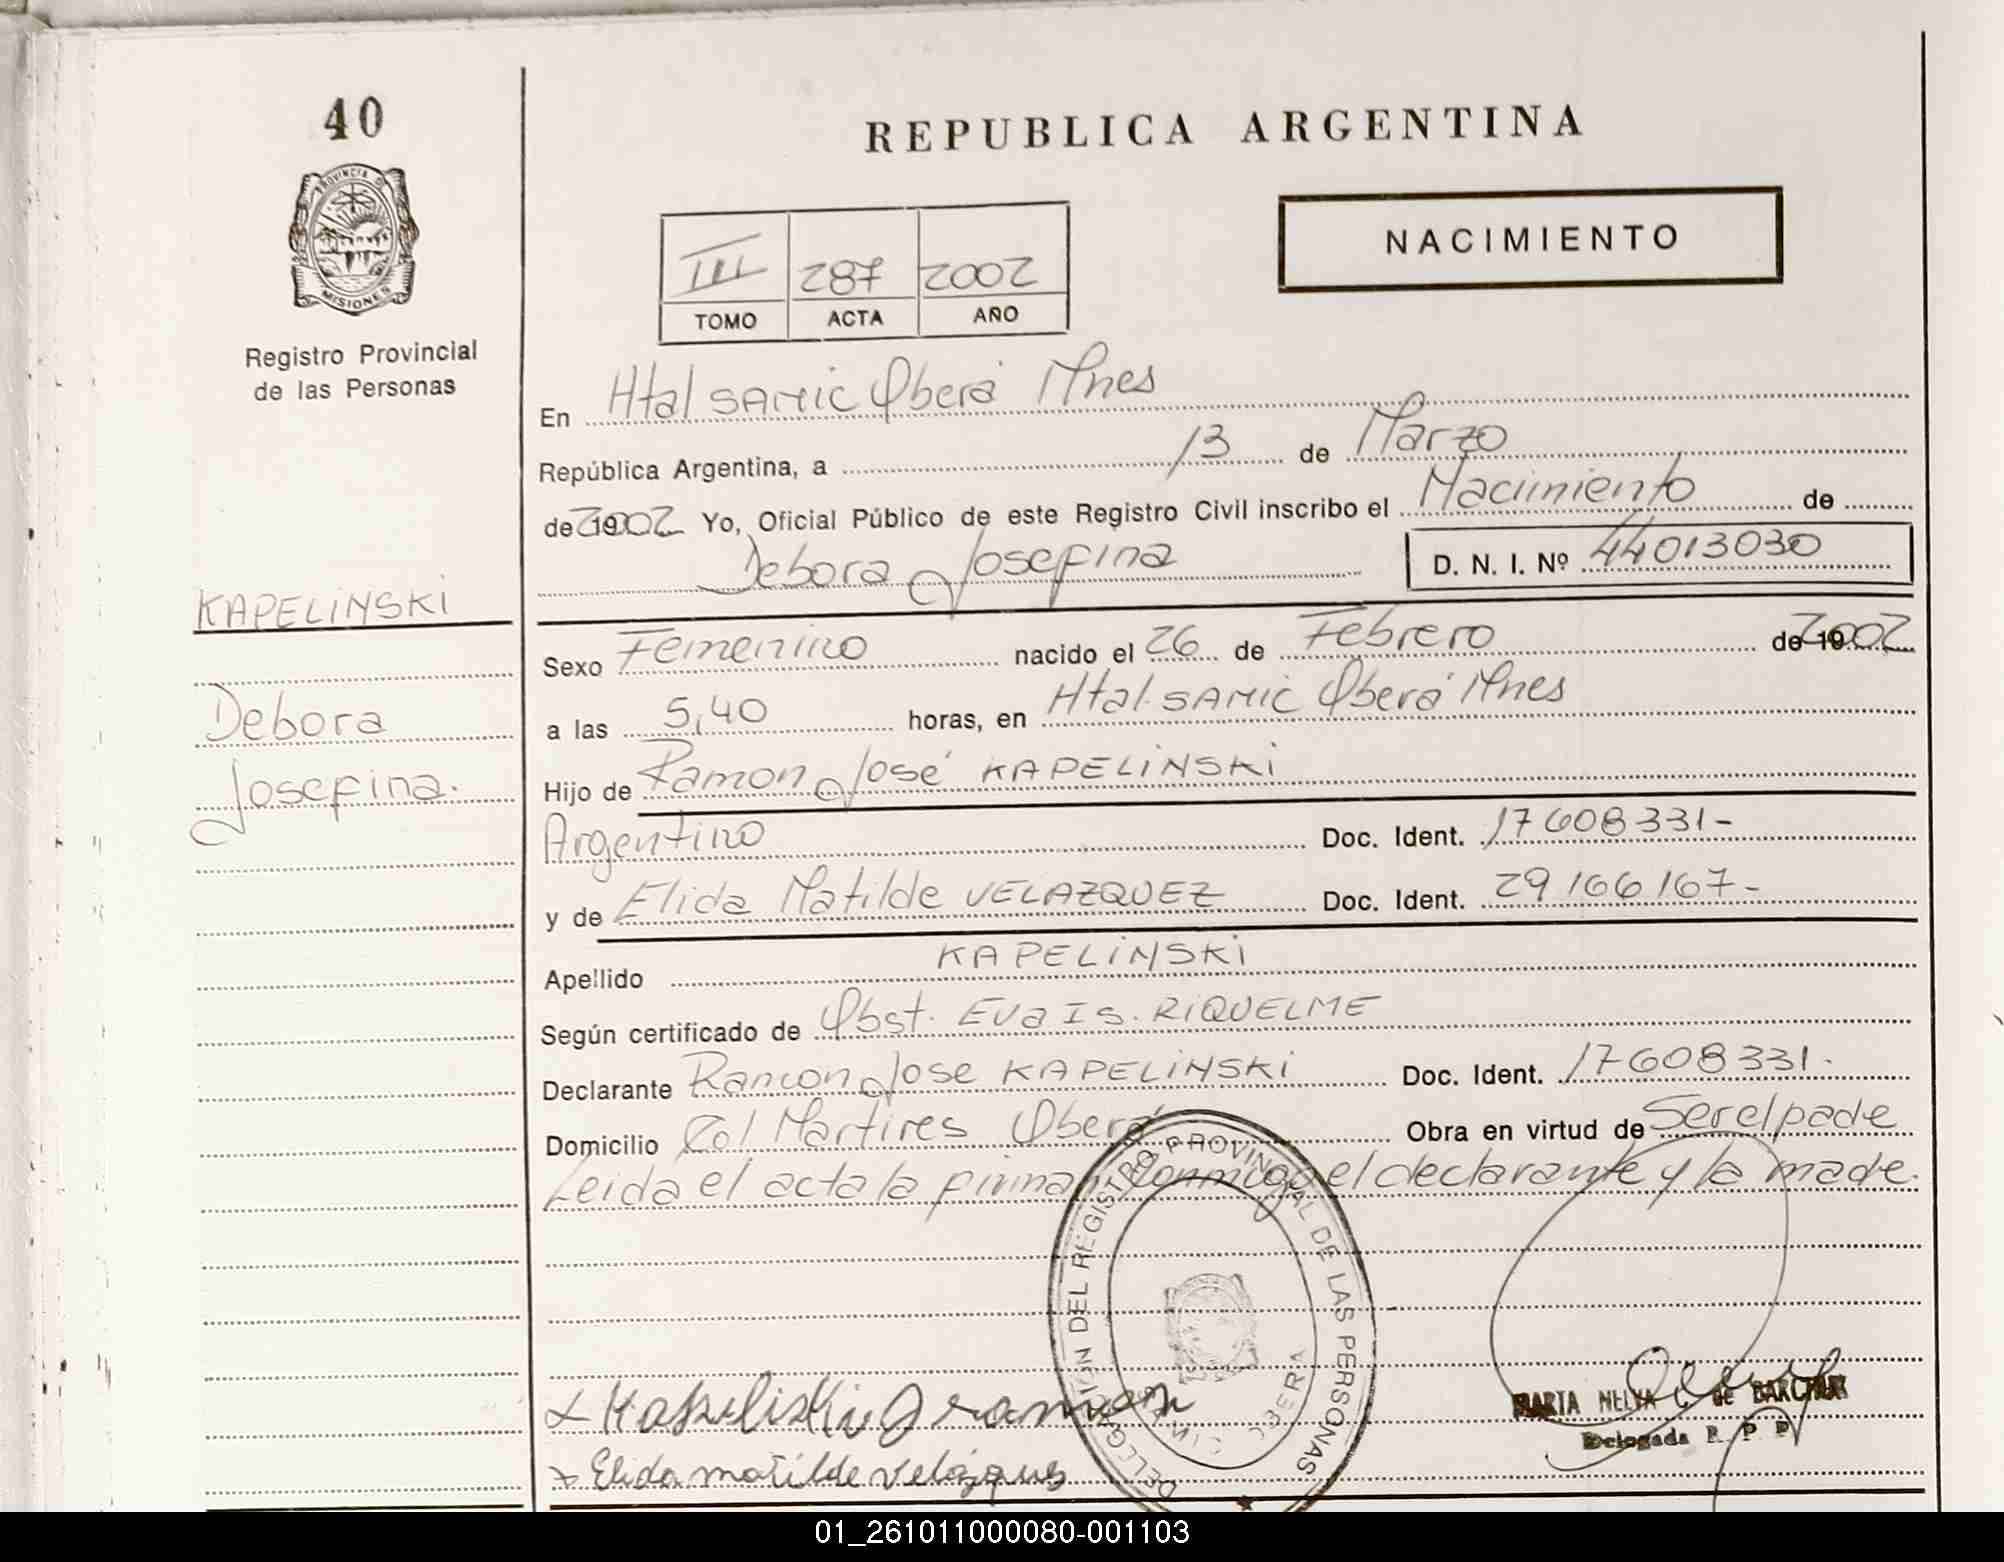 40
PROVINCIA D
MISIONES
Registro Provincial
de las Personas
KAPELINSKI
Debora
Josefina.
REPUBLICA ARGENTINA
NACIMIENTO
III 287 2002
TOMO ACTA AÑO
En Htal SAMIC Oberá Mnes
República Argentina, a 13 de Marzo
de 2002 Yo, Oficial Público de este Registro Civil inscribo el Nacimiento de
Debora Josefina D. N. I. Nº 44013030
Sexo Femenino nacido el 26 de Febrero de 2002
a las 5,40 horas, en Htal. SAMIC Oberá Mnes
Hijo de Ramon José KAPELINSKI
Argentino Doc. Ident. 17608331-
y de Elida Matilde VELAZQUEZ Doc. Ident. 29166167-
Apellido KAPELINSKI
Según certificado de Obst. Eva Is. RIQUELME
Declarante Ramon Jose KAPELINSKI Doc. Ident. 17608331.
Domicilio Col Martires Oberá Obra en virtud de Serelpade
Leida el acta la firman Conmigo el declarante y la made.
DELEGACIÓN DEL REGISTRO PROVINCIAL DE LAS PERSONAS
OBERA
Kapeliski J ramon
Elida matilde velázquez
MARTA NELYA C. de
Delegada R. P. P.
01_261011000080-001103